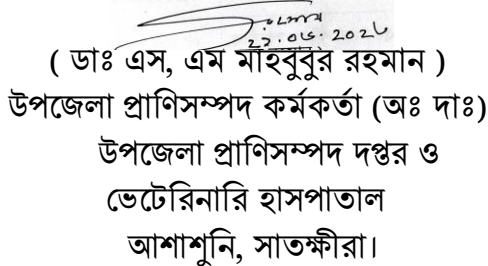 ( ডাঃ এস, এম মাহবুবুর রহমান )
উপজেলা প্রাণিসম্পদ কর্মকর্তা (অঃ দাঃ)
উপজেলা প্রাণিসম্পদ দপ্তর ও
ভেটেরিনারি হাসপাতাল
আশাশুনি, সাতক্ষীরা।